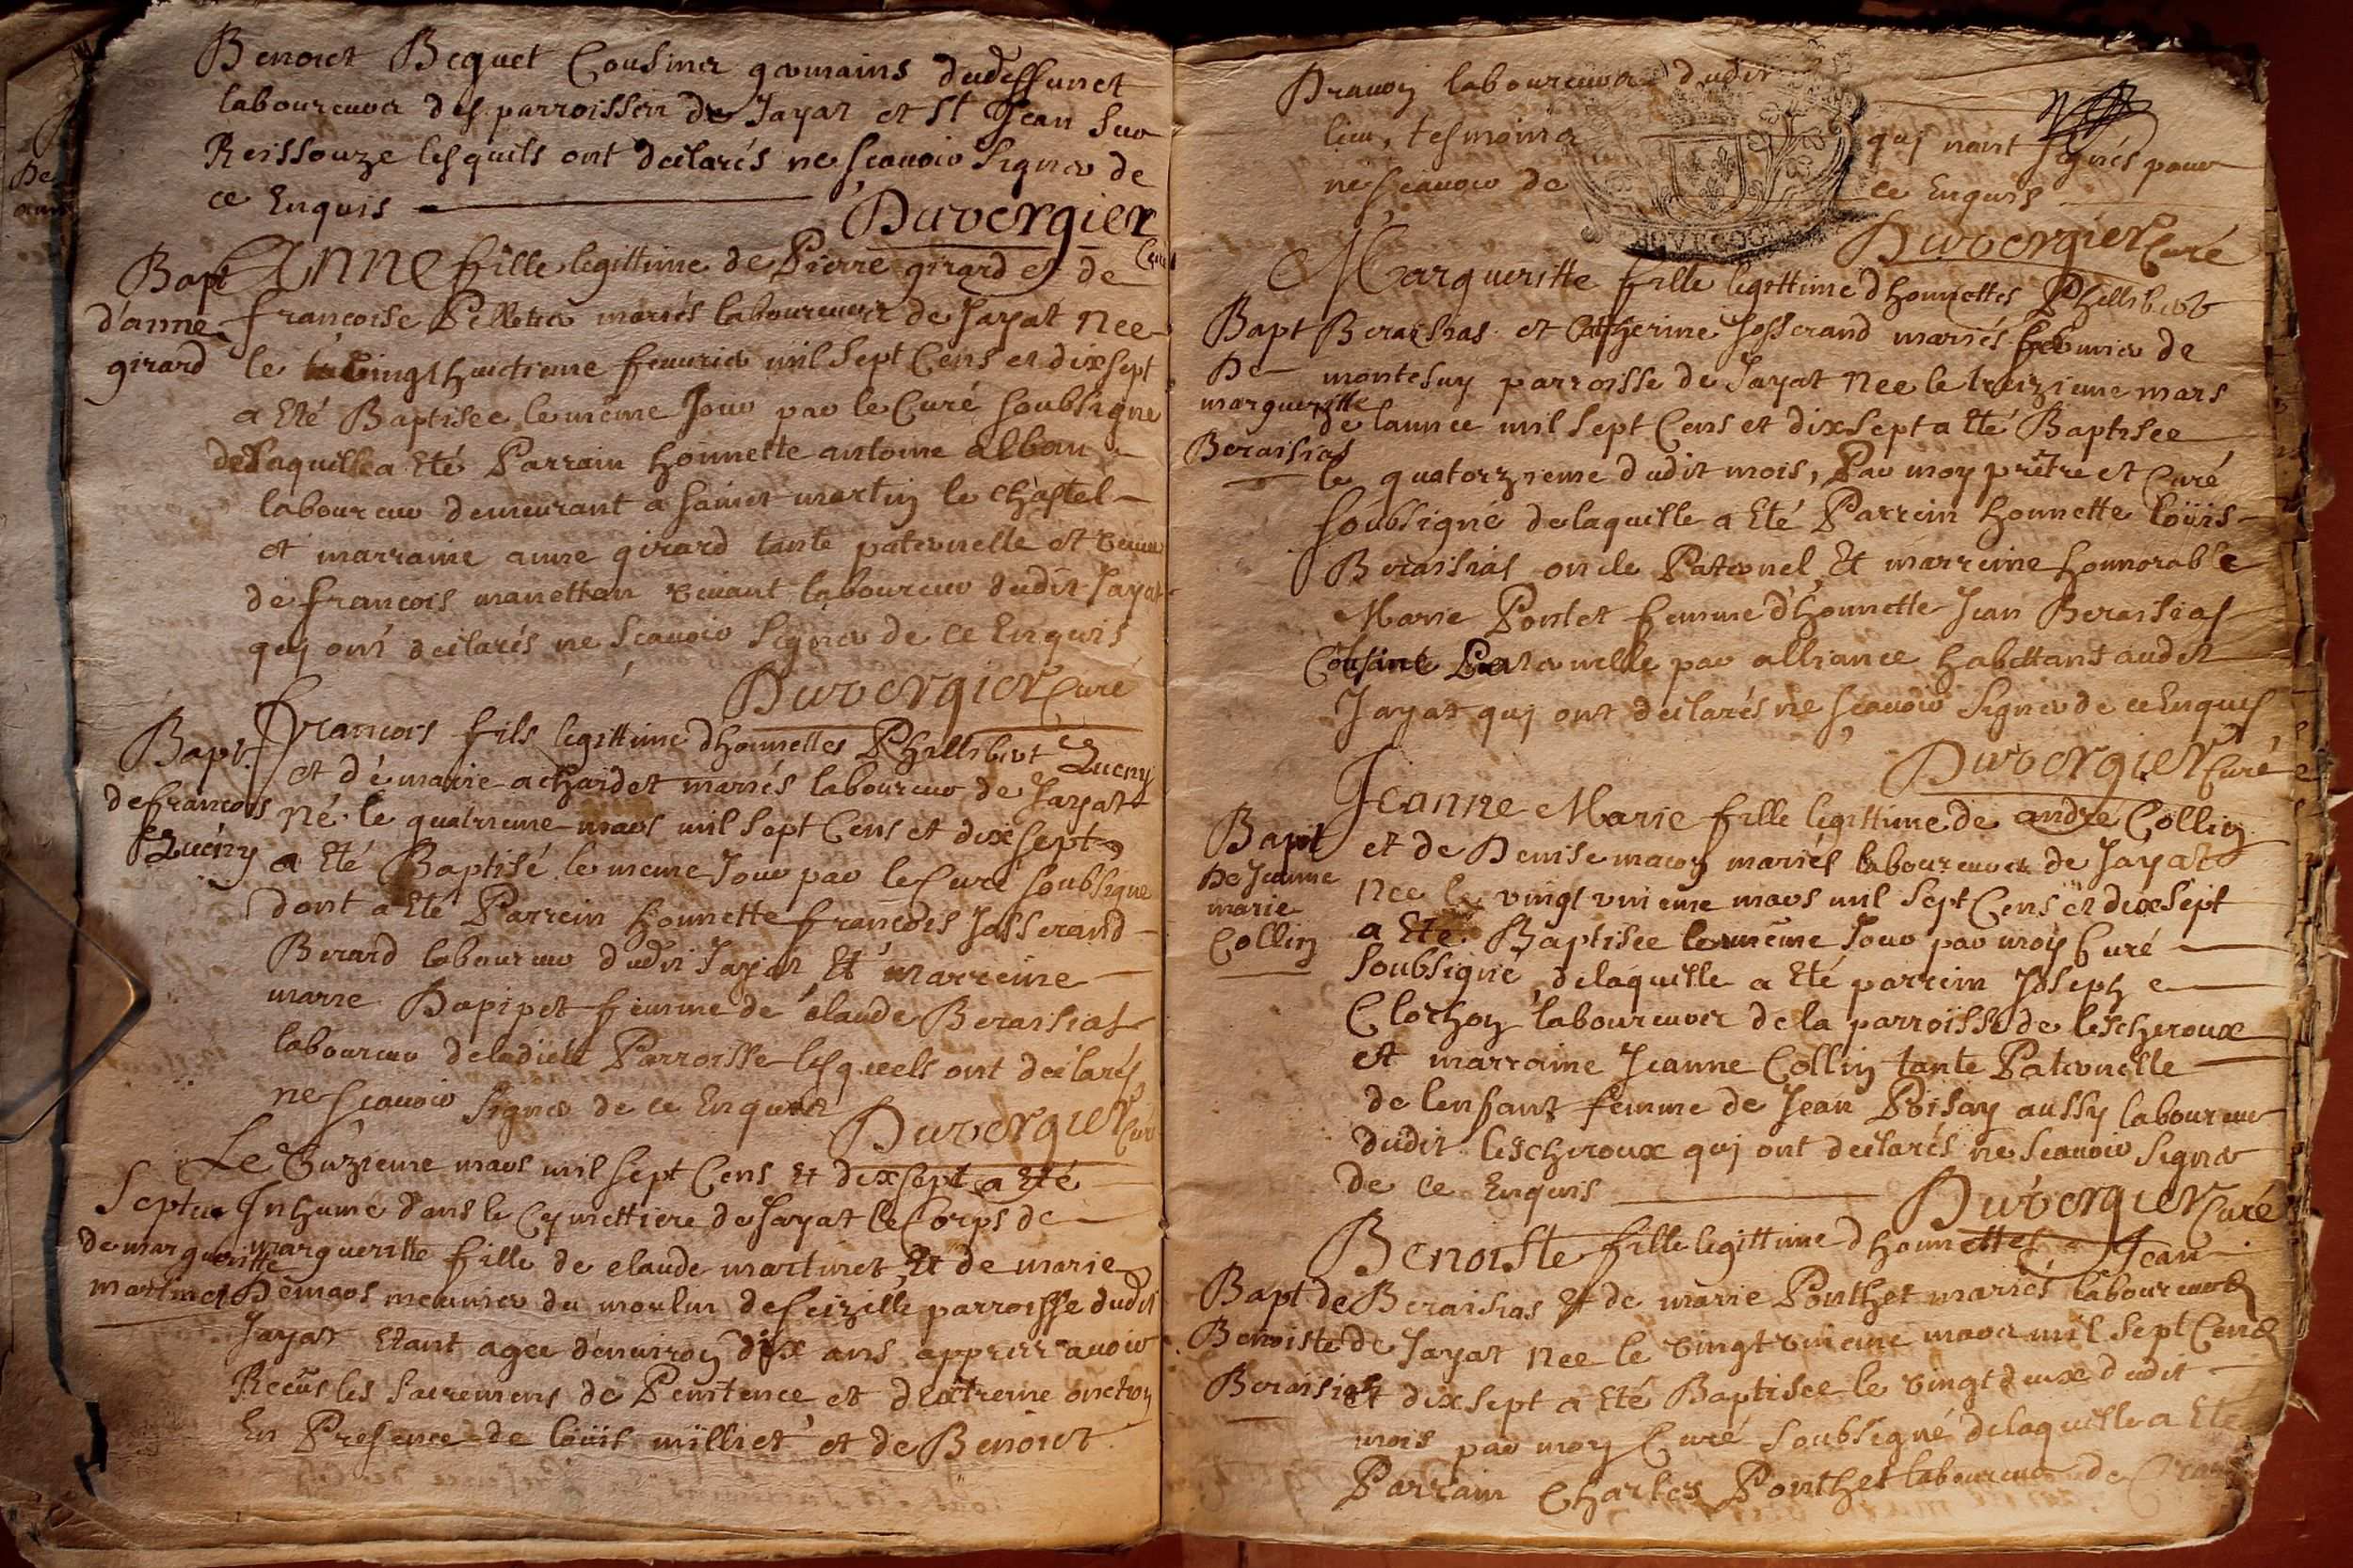 Benoict Bequet Cousins germains dudeffunct
laboureurs des parroisses de Jayat et St Jean sur
Reissouze lesquels ont declarés ne scavoir signer de
ce Enquis
Duvergier
Curé
Bapt
d'anne
girard
Anne fille legittime de Pierre girard et de
francoise Pelletier mariés laboureurs de Jayat Nee
le vingt huictieme fevrier mil sept Cens et dix sept
a Eté Baptisee le même Jour par le Curé soubsigne
de laquille a Eté Parrain honnette antoine alban
laboureur demeurant a sainct martin le chastel
et marraine anne girard tante paternelle et veuve
de francois manettan vivant laboureur dudit Jayat
quj ont declarés ne scavoir signer de ce Enquis
Duvergier Curé
Bapt.
de francois
Queny
francois fils legittime dhonnettes Phillibert Queny
et de marie achardet mariés laboureur de Jayat
Né le quatrieme mars mil sept Cens et dix sept
a Eté Baptisé le meme Jour par le Curé soubsigne
dont a Eté Parrein honnette francois Josserand
Berard laboureur dudit Jayat Et marreine
marie Dapipet femme de claude Beraisias
laboureur deladicte Parroisse lesqueels ont declarés
ne scavoir signer de ce Enquis
Duvergier Curé
Septure
de margueritte
martinet
Le Onzieme mars mil sept Cens Et dix sept a Eté
Inhumé dans le Cymettiere de Jayat le Corps de
margueritte fille de claude martinet Et de marie
Demars meunier du moulin de seizille parroisse dudit
Jayat Etant agee denviron dix ans apprez avoir
Receus les sacremens de Penitence et dextreme onction
En Presence de Loüis milliet et de Benoict
Drauoy laboureurs dudit
lieu, tesmoins quj nont signés pour
ne scavoir de ce Enquis
Duvergier Curé
Bapt
De
margueritte
Beraisias
Margueritte fille legittime dhonnettes Phillibert
Beraisias et Catherine Josserand mariés fermier de
montesuy parroisse de Jayat Nee le treizieme mars
de lannee mil sept Cens et dix sept a Eté Baptisee
le quatorzieme dudit mois, Par moy prêtre et Curé
soubsigné delaquille a Eté Parrein honnette Loüis
Beraisias oncle Paternel Et marreine honnorable
Marie Pontet femme d'honnette Jean Beraisias
Cousine Paternelle par alliance habittant audit
Jayat quj ont declarés ne scavoir signer de ce Enquis
Duvergier Curé
Bapt
De Jeanne
marie
Collin
Jeanne Marie fille legittime de andré Collin
et de Denise macon mariés laboureurs de Jayat
Nee le vingt unieme mars mil sept Cens et dix sept
a Eté Baptisee le même Jour par moy Curé
soubsigné, delaquille a Eté parrein Joseph
Clochon laboureur de la parroisse de lescheroux
et marraine Jeanne Collin tante Paternelle
de lenfant femme de Jean Poisay aussy laboureur
dudit lescheroux quj ont declarés ne scavoir signer
de ce Enquis
Duvergier Curé
Bapt de
Benoiste
Beraisias
Benoiste fille legittime dhonnettes Jean
Beraisias Et de marie Ponthet mariés laboureurs
de Jayat Nee le vingt unieme mars mil sept Cens
et dix sept a Eté Baptisee le vingt deux dudit
mois par moy Curé soubsigné delaquille a Eté
Parrain Charles Ponthet laboureur de